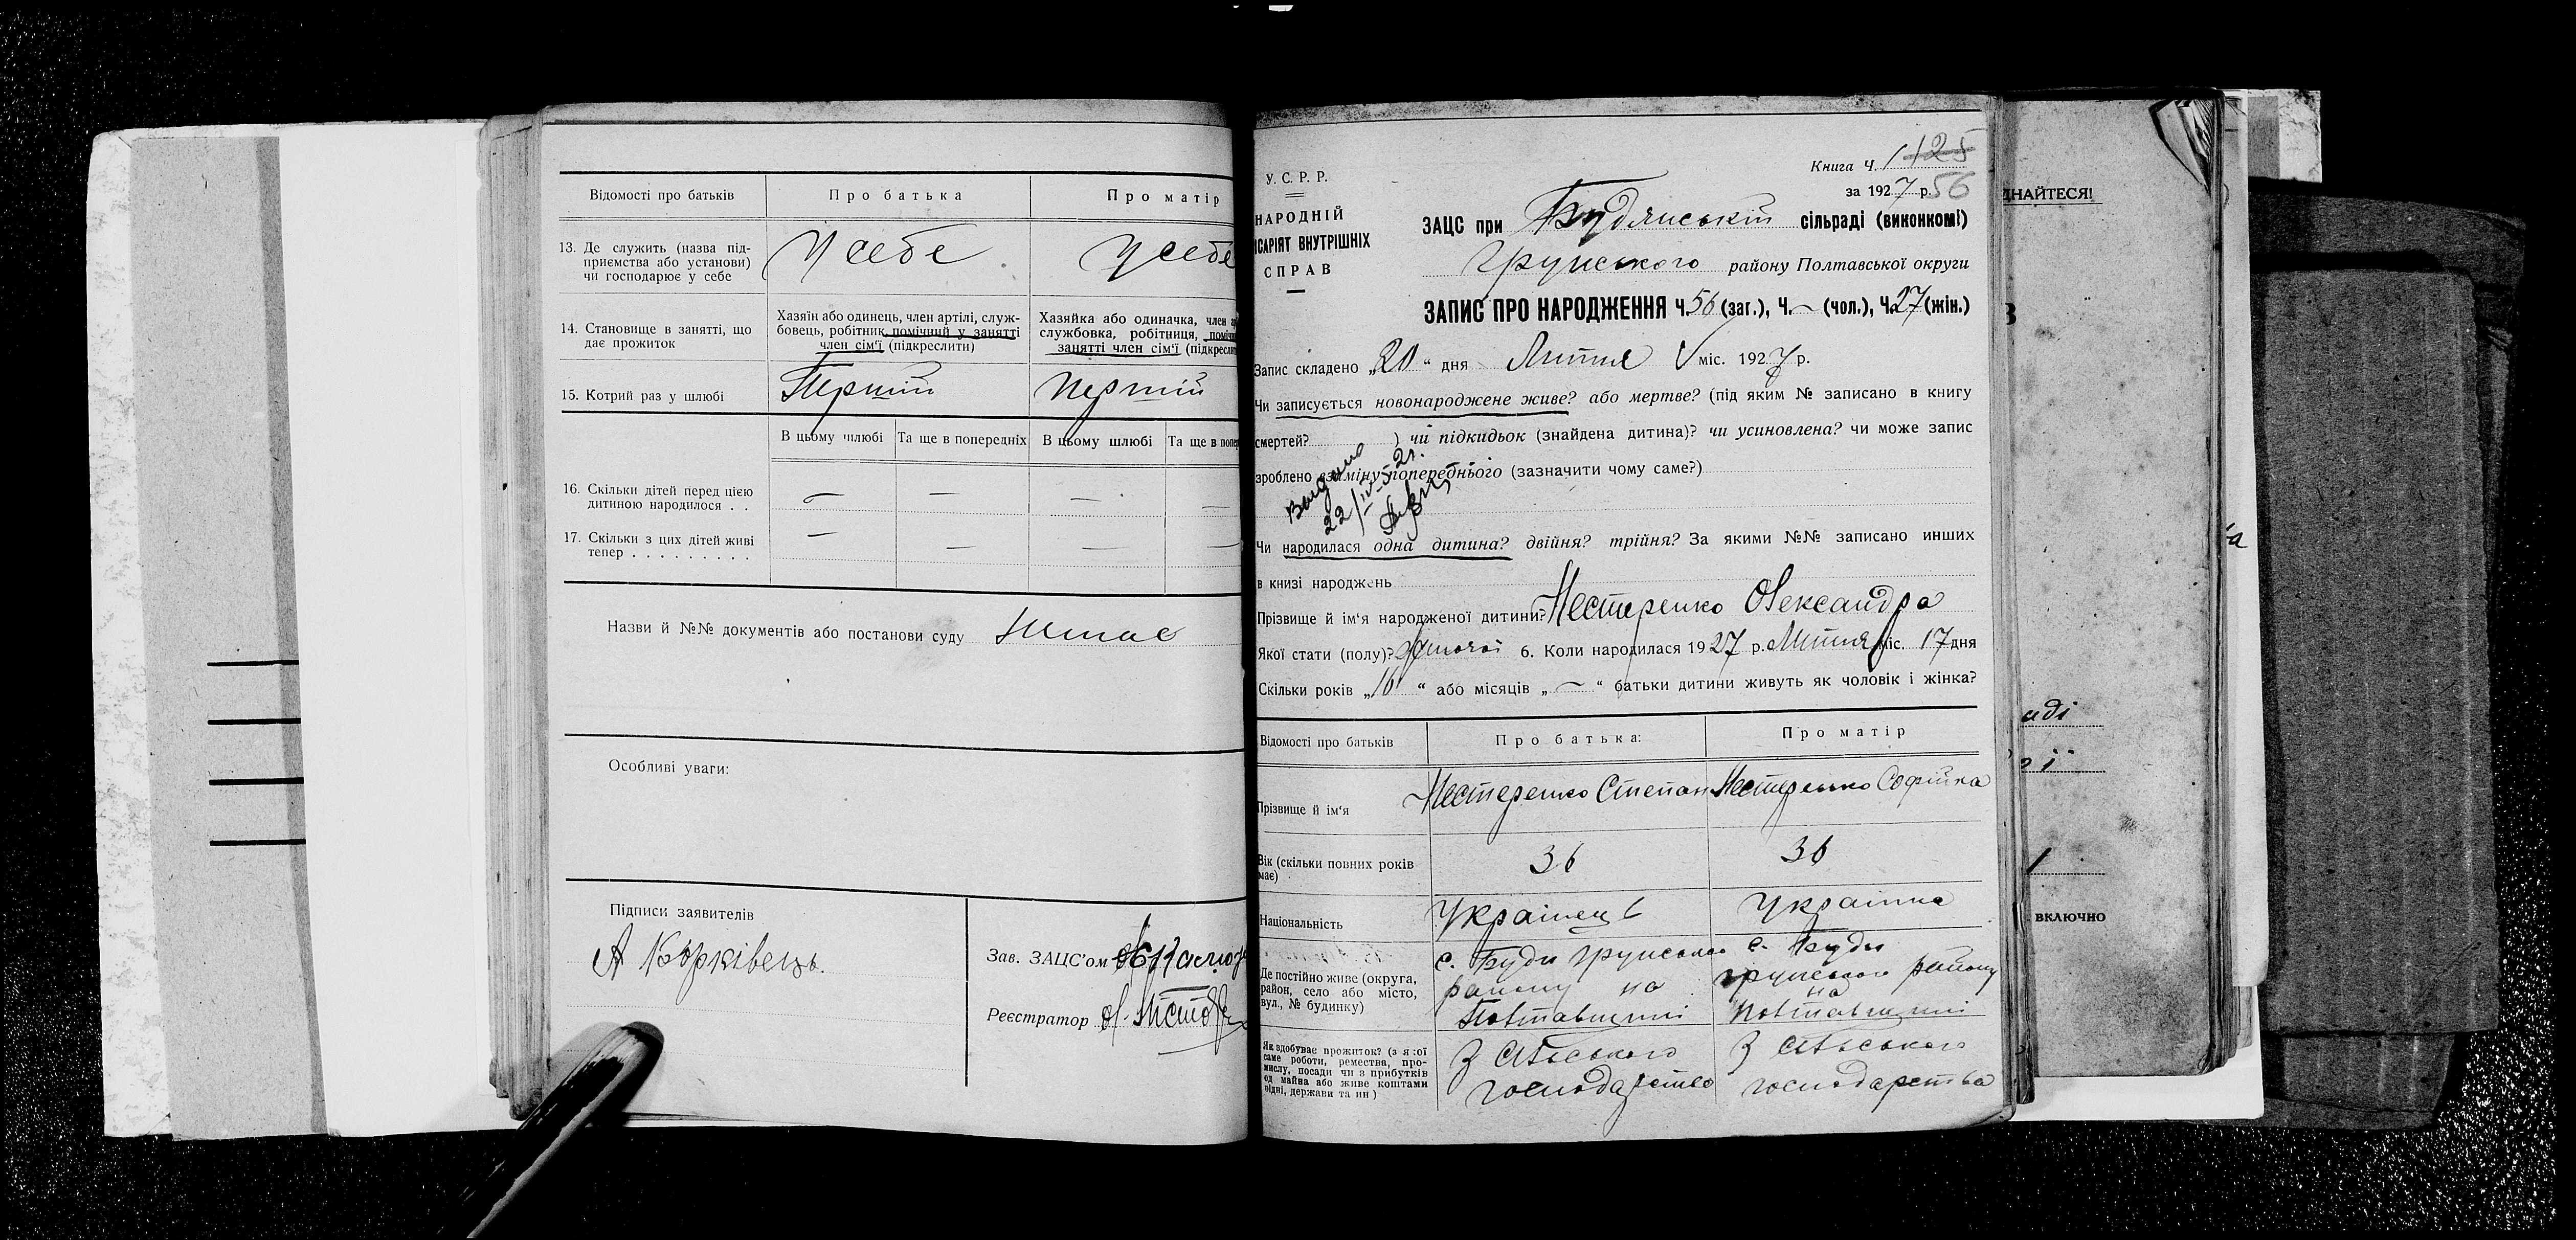 Відомості про батьків
Про батька
Про матір
13. Де служить (назва під-
приємства або установи)
чи господарює у себе
У себе
у себе
14. Становище в занятті, що
дає прожиток
Хазяїн або одинець, член артілі, служ-
бовець, робітник, помічний у занятті
член сім'ї (підкреслити)
Хазяйка або одиначка, член
службовка, робітниця,
занятті член сім'ї
15. Котрий раз у шлюбі
Перший
Перший
В цьому шлюбі
Та ще в попередніх
В цьому шлюбі
Та ще в
16. Скільки дітей перед цією
дитиною народилося . .
— — — —
17. Скільки з цих дітей живі
тепер . . . . . . . . .
— — — —
Назви й №№ документів або постанови суду Немає
Особливі уваги:
Підписи заявителів
А Борківець.
Зав. ЗАЦС'ом
Реєстратор
Книга Ч. 1 125
за 1927 р. 56
У. С. Р. Р.
НАРОДНІЙ
ІСАРІЯТ ВНУТРІШНІХ
СПРАВ
ЗАЦС при Будянській сільраді (виконкомі)
Грунського району Полтавської округи
ЗАПИС ПРО НАРОДЖЕННЯ Ч.56 (заг.), Ч.— (чол.), Ч.27 (жін.)
Запис складено „20“ дня Липня міс. 1927 р.
Чи записується новонароджене живе? або мертве? (під яким № записано в книгу
смертей? ) чи підкидьок (знайдена дитина)? чи усиновлена? чи може запис
зроблено взаміну попереднього (зазначити чому саме?)
Выдано
22/IV-52г.
Чи народилася одна дитина? двійня? трійня? За якими №№ записано инших
в книзі народжень
Прізвище й ім'я народженої дитини? Нестеренко Олександра
Якої стати (полу)? Жіночої 6. Коли народилася 1927 р. Липня міс. 17 дня
Скільки років „16“ або місяців „—“ батьки дитини живуть як чоловік і жінка?
Відомості про батьків
Про батька:
Про матір
Прізвище й ім'я
Нестеренко Степан
Нестеренко Софійка
Вік (скільки повних років
має)
36
36
Національність
Українець
Українка
Де постійно живе (округа,
район, село або місто,
вул., № будинку)
с. Буди Грунського
району на
Полтавщині
с. Буди
Грунського району
на
Полтавщині
Як здобуває прожиток? (з якої
саме роботи, ремества, про-
мислу, посади чи з прибутків
од майна або живе коштами
рідні, держави та ин )
З сільського
господарства
З сільського
господарства
ДНАЙТЕСЯ!
включно